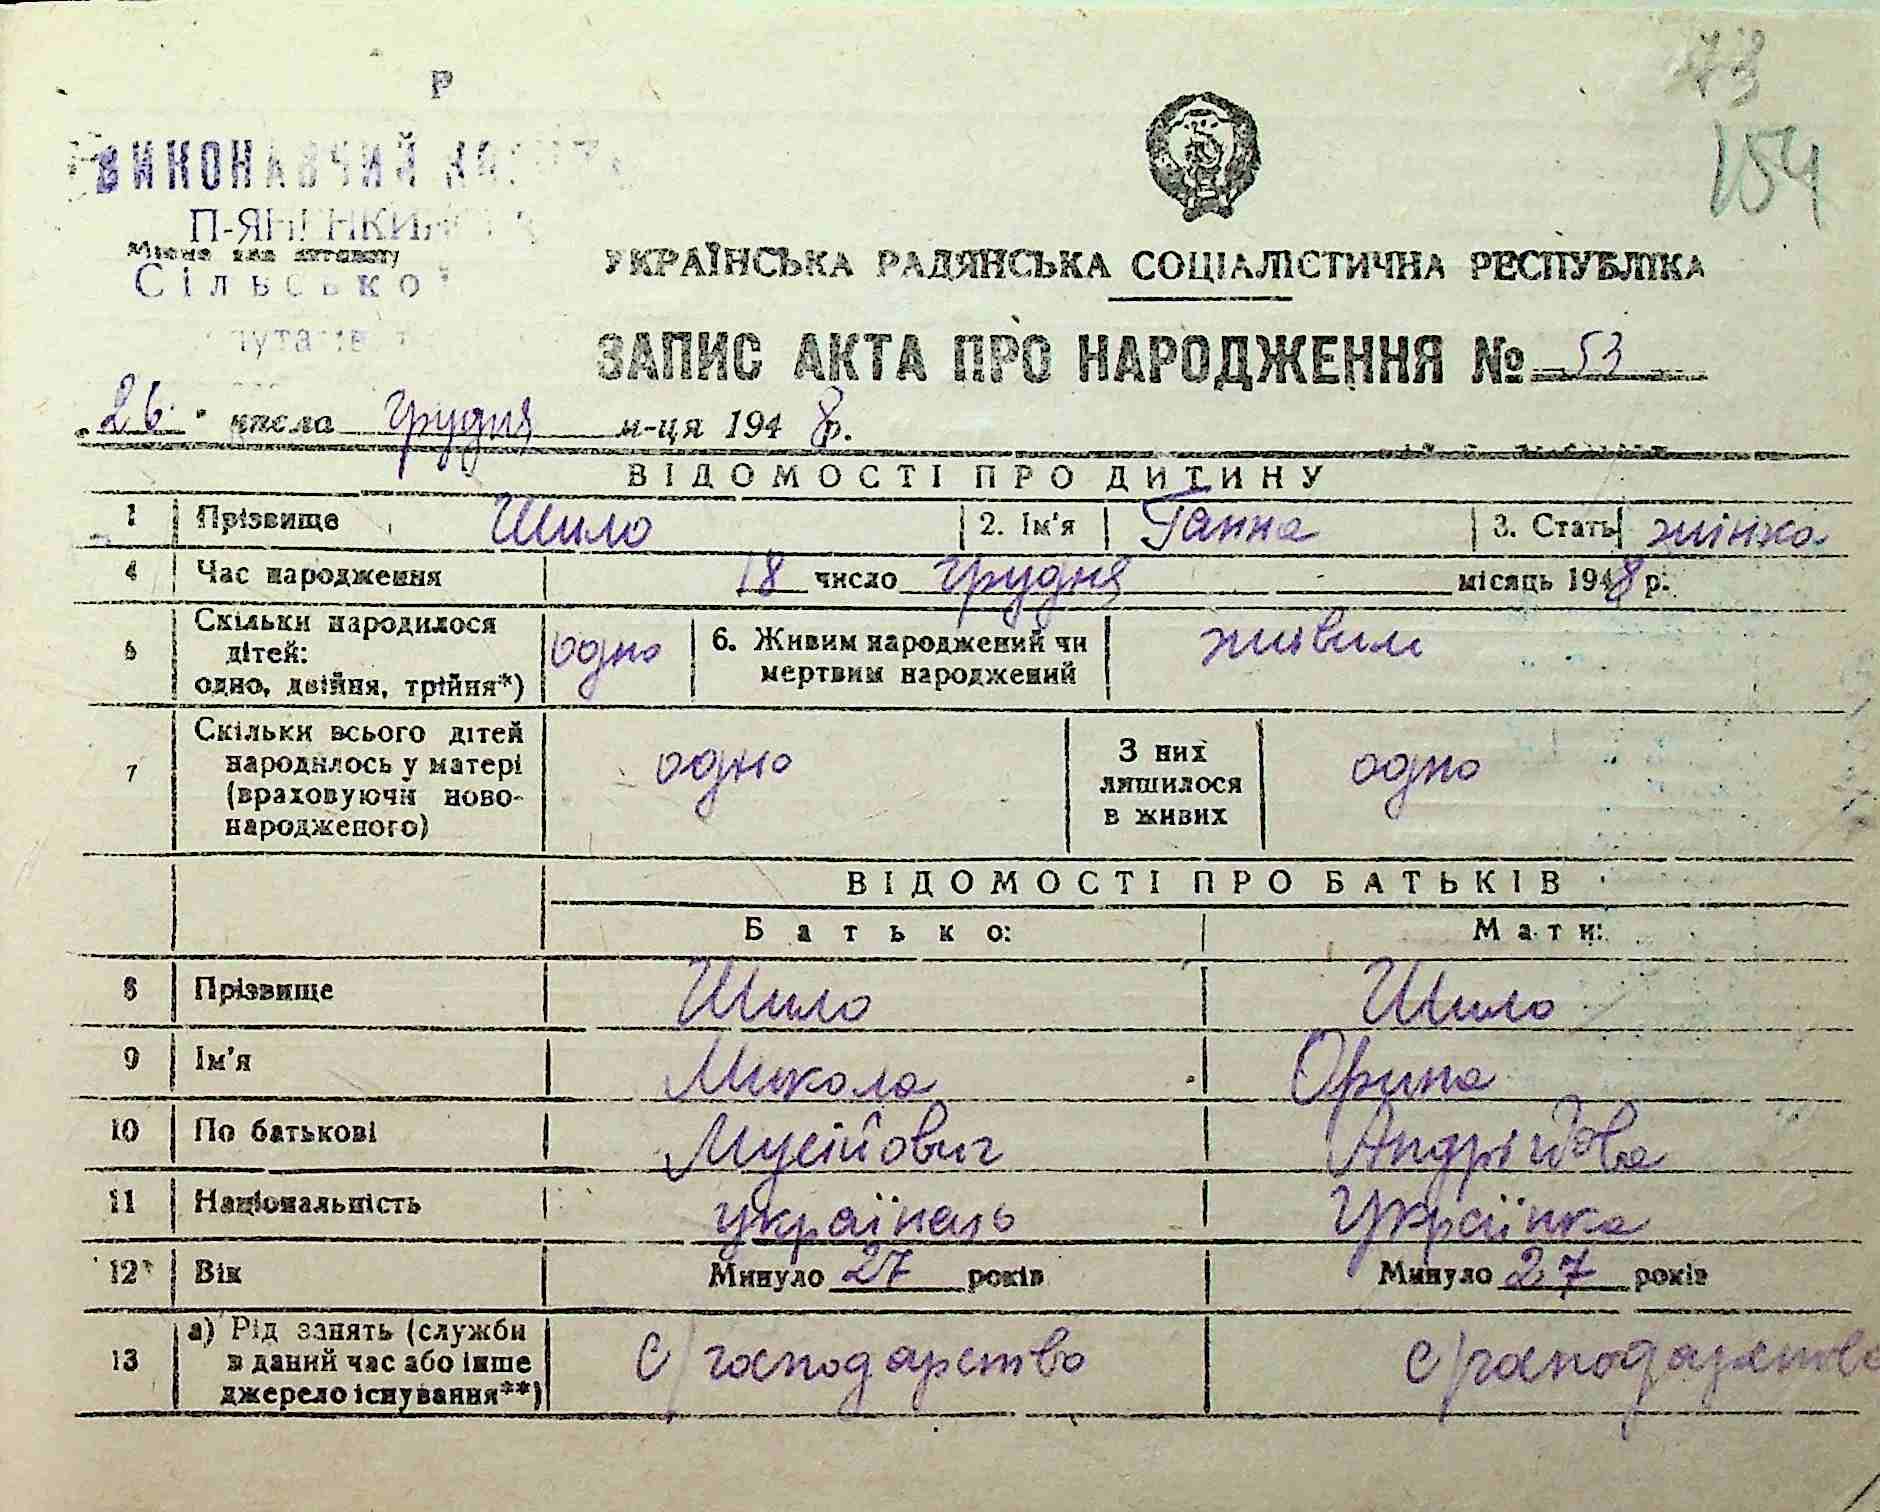 73
154
Р
ВИКОНАВЧИЙ
Місце для штампу
Сільської
УКРАЇНСЬКА РАДЯНСЬКА СОЦІАЛІСТИЧНА РЕСПУБЛІКА
ЗАПИС АКТА ПРО НАРОДЖЕННЯ № 53
"26" числа грудня м-ця 1948 р.
ВІДОМОСТІ ПРО ДИТИНУ
1 Прізвище Шило 2. Ім'я Ганна 3. Стать жінка
4 Час народження 18 число грудня місяць 1948 р.
5 Скільки народилося дітей: одно, двійня, трійня*) одно 6. Живим народжений чи мертвим народжений живим
7 Скільки всього дітей народилось у матері (враховуючи новонародженого) одно З них лишилося в живих одно
ВІДОМОСТІ ПРО БАТЬКІВ
Батько: Мати:
8 Прізвище Шило Шило
9 Ім'я Микола Орина
10 По батькові Мусійович Андріївна
11 Національність українець Українка
12 Вік Минуло 27 років Минуло 27 років
13 а) Рід занять (служби в даний час або інше джерело існування**) с/господарство с/господарство